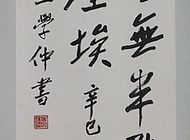 無半點
塵埃
辛巳
學仲書